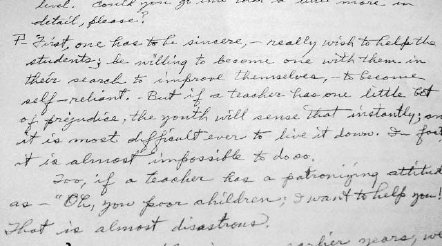 level. Could you go into that a little more in
detail, please?
P- First, one has to be sincere, - really wish to help the
students; be willing to become one with them in
their search to improve themselves, - to become
self-reliant. - But if a teacher has one little bit
of prejudice, the youth will sense that instantly; and
it is most difficult ever to live it down. In fact
it is almost impossible to do so.
Too, if a teacher has a patronizing attitud
as - "Oh, you poor children; I want to help you!
That is almost disastrous.
earlier years, we